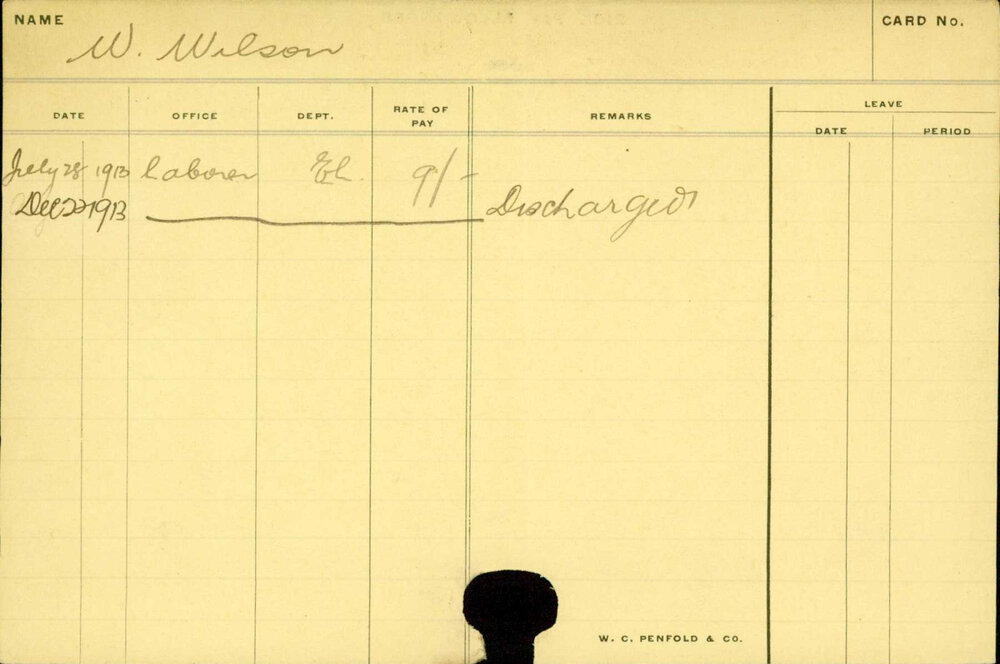 NAME W. Wilson CARD No.
DATE OFFICE DEPT. RATE OF PAY REMARKS LEAVE
DATE PERIOD
July 28 1913 laborer El. 9/-
Dec 22 1913 Discharged
W. C. PENFOLD & CO.